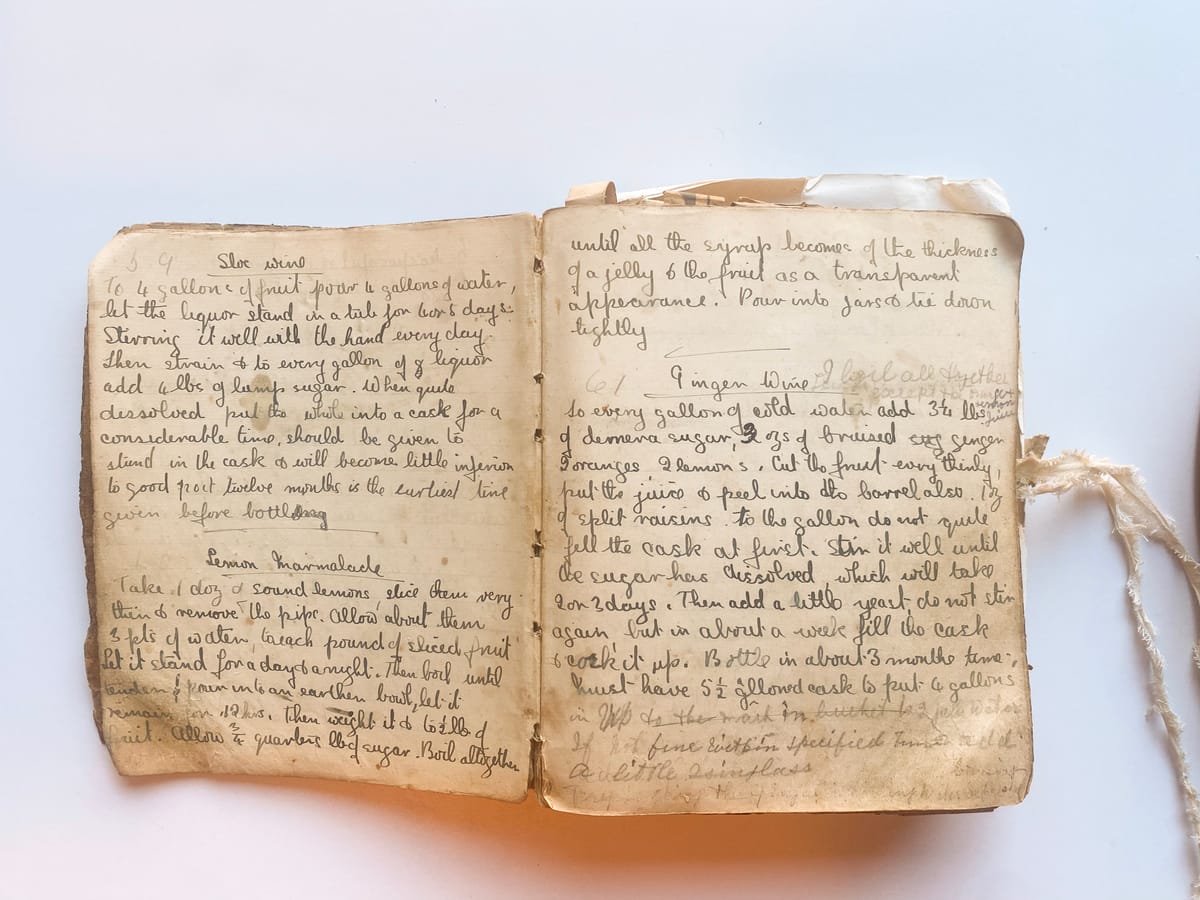 59
Sloe wine
To 4 gallons of fruit pour 4 gallons of water,
let the liquor stand in a tub for 4 or 5 days:
Sterring it well with the hand every day.
Then strain & to every gallon of y liquor
add 4 lbs of lump sugar. When quite
dissolved put the whole into a cask for a
considerable time, should be given to
stand in the cask & will become little inferior
to good port twelve months is the earliest time
given before bottling
Lemon Marmalade
Take 1 doz of sound lemons, slice them very
thin & remove the pips. Allow about them
3 pts of water, to each pound of sliced fruit
Let it stand for a day & a night. Then boil until
tender & pour into an earthen bowl, let it
remain for 12 hrs. Then weight it & to lb of
fruit. Allow 3/4 quarters lb of sugar. Boil altogether
until all the syrup becomes of the thickness
of a jelly & the fruit as a transparent
appearance. Pour into jars & tie down
tightly
61
Ginger Wine I boil all together
To every gallon of cold water add 3 1/4 lbs
of demera sugar, 2 ozs of bruised sug ginger
5 oranges 2 lemons. Cut the fruit every thinly,
put the juice & peel into the barrel also. 1 oz
of split raisins. to the gallon do not quite
fell the cask at first. Stir it well until
the sugar has dissolved, which will take
2 or 3 days. Then add a little yeast, do not stir
again, but in about a week fill the cask
& cork it up. Bottle in about 3 months time,
must have 5 1/2 glloned cask to put 4 gallons
in Up to the mark in bucket is 2 gals water
If not fine within specified time add
a little Isinglass